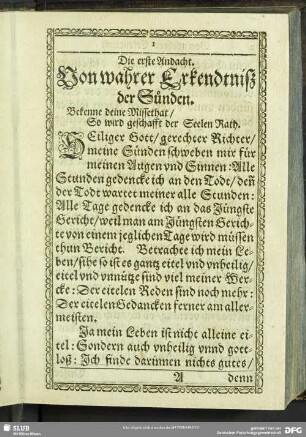 1
Die erste Andacht.
Von wahrer Erkendtniß
der Sünden.
Bekenne deine Missethat /
So wird geschafft der Seelen Rath.
HEiliger Gott / gerechter Richter /
meine Sünden schweben mir für
meinen Augen vnd Sinnen: Alle
Stunden gedencke ich an den Todt / deñ
der Todt wartet meiner alle Stunden:
Alle Tage gedencke ich an das Jüngste
Gericht / weil man am Jüngsten Gerich-
te von einem jeglichen Tage wird müssen
thun Bericht. Betrachte ich mein Le-
ben / sihe so ist es gantz eitel vnd vnheilig /
eitel vnd vnnütze sind viel meiner Wer-
cke: Der eitelen Reden sind noch mehr:
Der eitelen Gedancken ferner am aller-
meisten.
Ja mein Leben ist nicht alleine ei-
tel: Sondern auch vnheilig vnnd gott-
loß: Ich finde darinnen nichts gutes /
A denn
SLUB
DFG